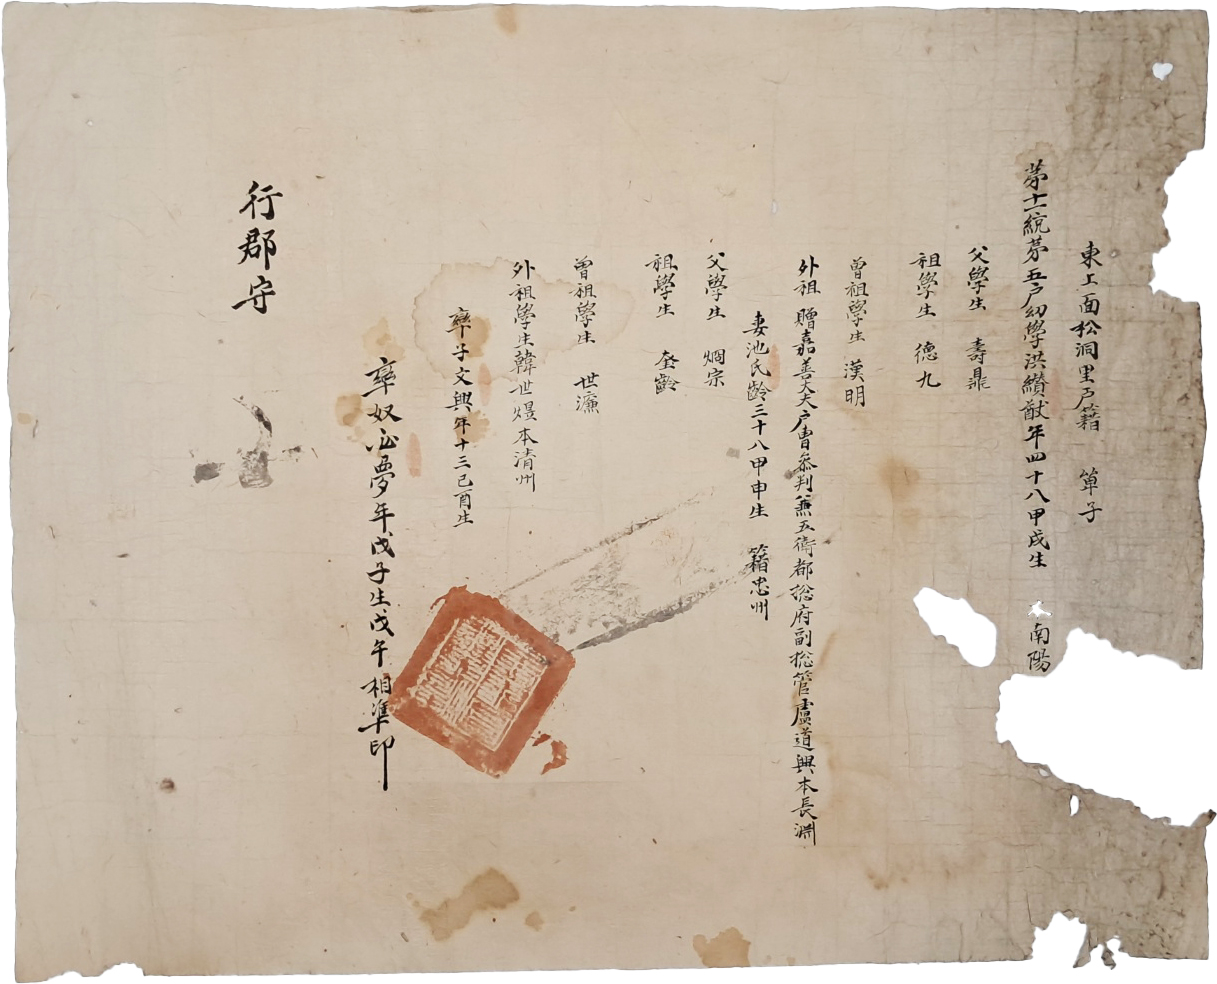 東上面松洞里戶籍 單子
第十一統第五戶幼學洪纘猷年四十八甲戌生 本南陽
父學生 壽鼎
祖學生 德九
曾祖學生 漢明
外祖 贈嘉善大夫戶曹參判兼五衛都摠府副摠管盧道興本長淵
妻池氏齡三十八甲申生 籍忠州
父學生 烱宗
祖學生 奎齡
曾祖學生 世濂
外祖學生韓世煜本淸州
率子文興年十三己酉生
率奴必夢年戊子生戊午 相準印
行郡守